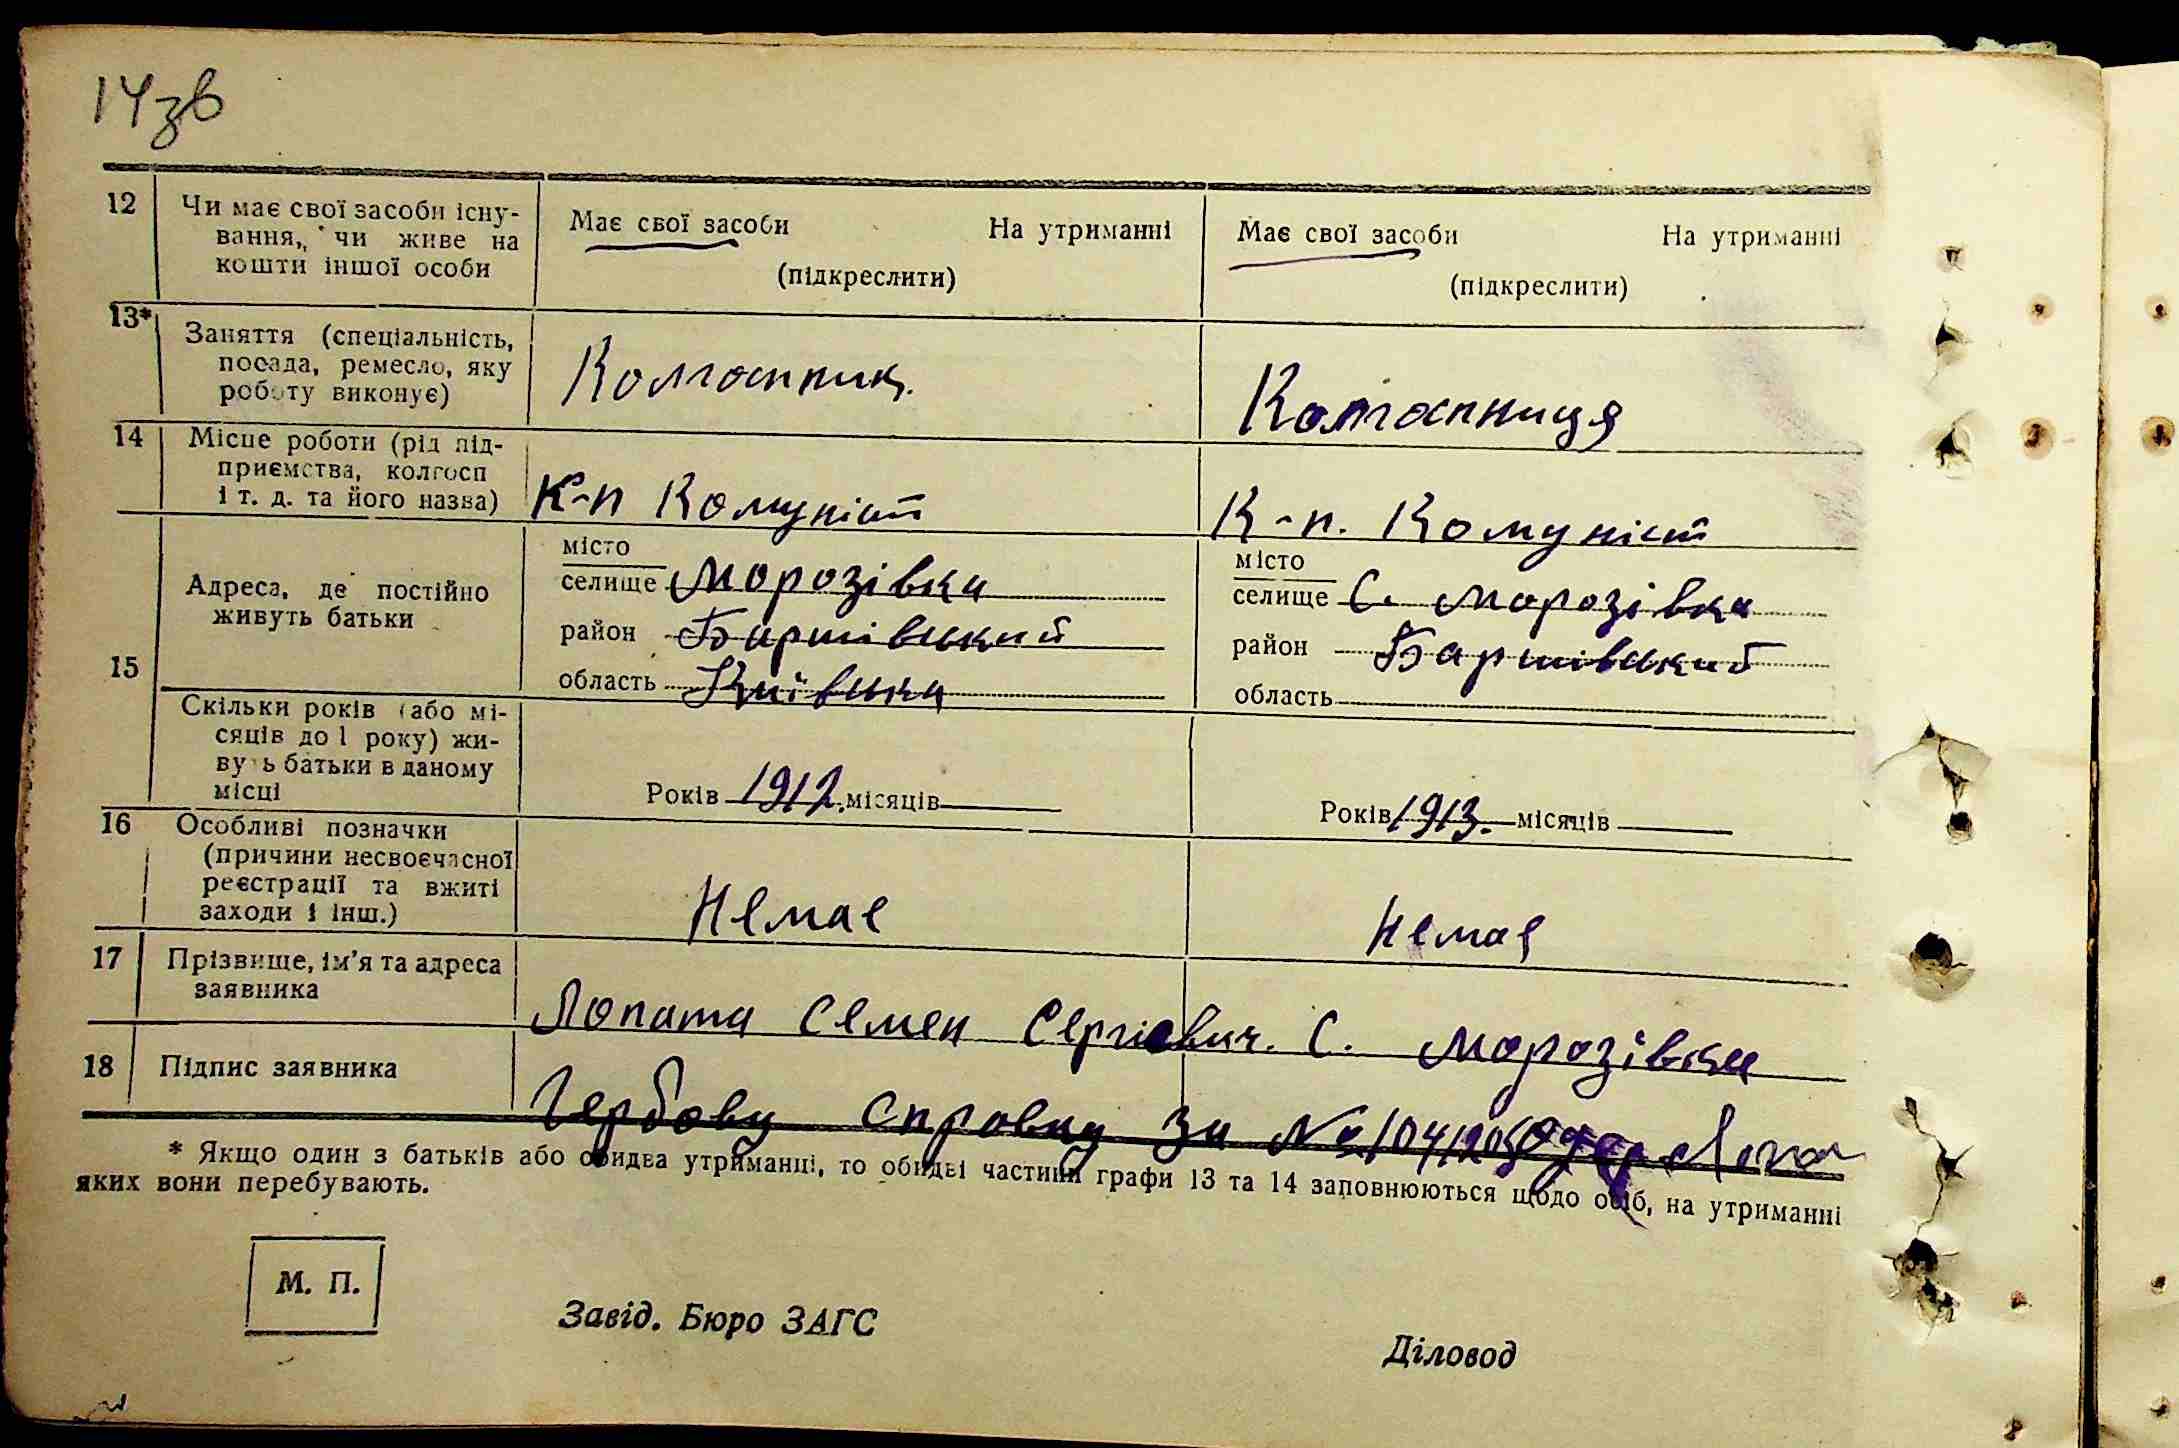 14зв
12 Чи має свої засоби існу-
вання, чи живе на
кошти іншої особи
Має свої засоби На утриманні
(підкреслити)
Має свої засоби На утриманні
(підкреслити)
13* Заняття (спеціальність,
посада, ремесло, яку
роботу виконує)
Колгоспник.
Колгоспниця
14 Місце роботи (рід під-
приємства, колгосп
і т. д. та його назва)
К-п Комуніст
К-п. Комуніст
15 Адреса, де постійно
живуть батьки
місто
селище Морозівка
район Баришівський
область Київська
місто
селище С. Морозівка
район Баришівський
область
Скільки років (або мі-
сяців до 1 року) жи-
вуть батьки в даному
місці
Років 1912. місяців
Років 1913. місяців
16 Особливі позначки
(причини несвоєчасної
реєстрації та вжиті
заходи і інш.)
Немає
Немає
17 Прізвище, ім'я та адреса
заявника
Лопата Семен Сергієвич. С. Морозівка
18 Підпис заявника
Гербову справку за № 104120
* Якщо один з батьків або обидва утриманці, то обидві частини графи 13 та 14 заповнюються щодо осіб, на утриманні
яких вони перебувають.
М. П.
Завід. Бюро ЗАГС
Діловод